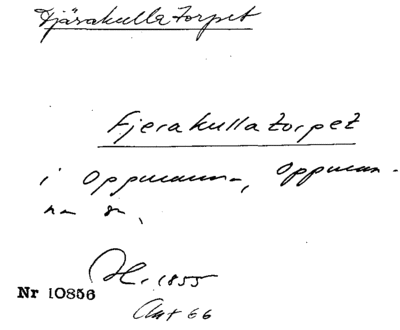 Fjärakullatorpet
Fjerakullatorpet
i Oppmanna, Oppman-
na sn,
H. 1855
Nr 10856
Ant 66